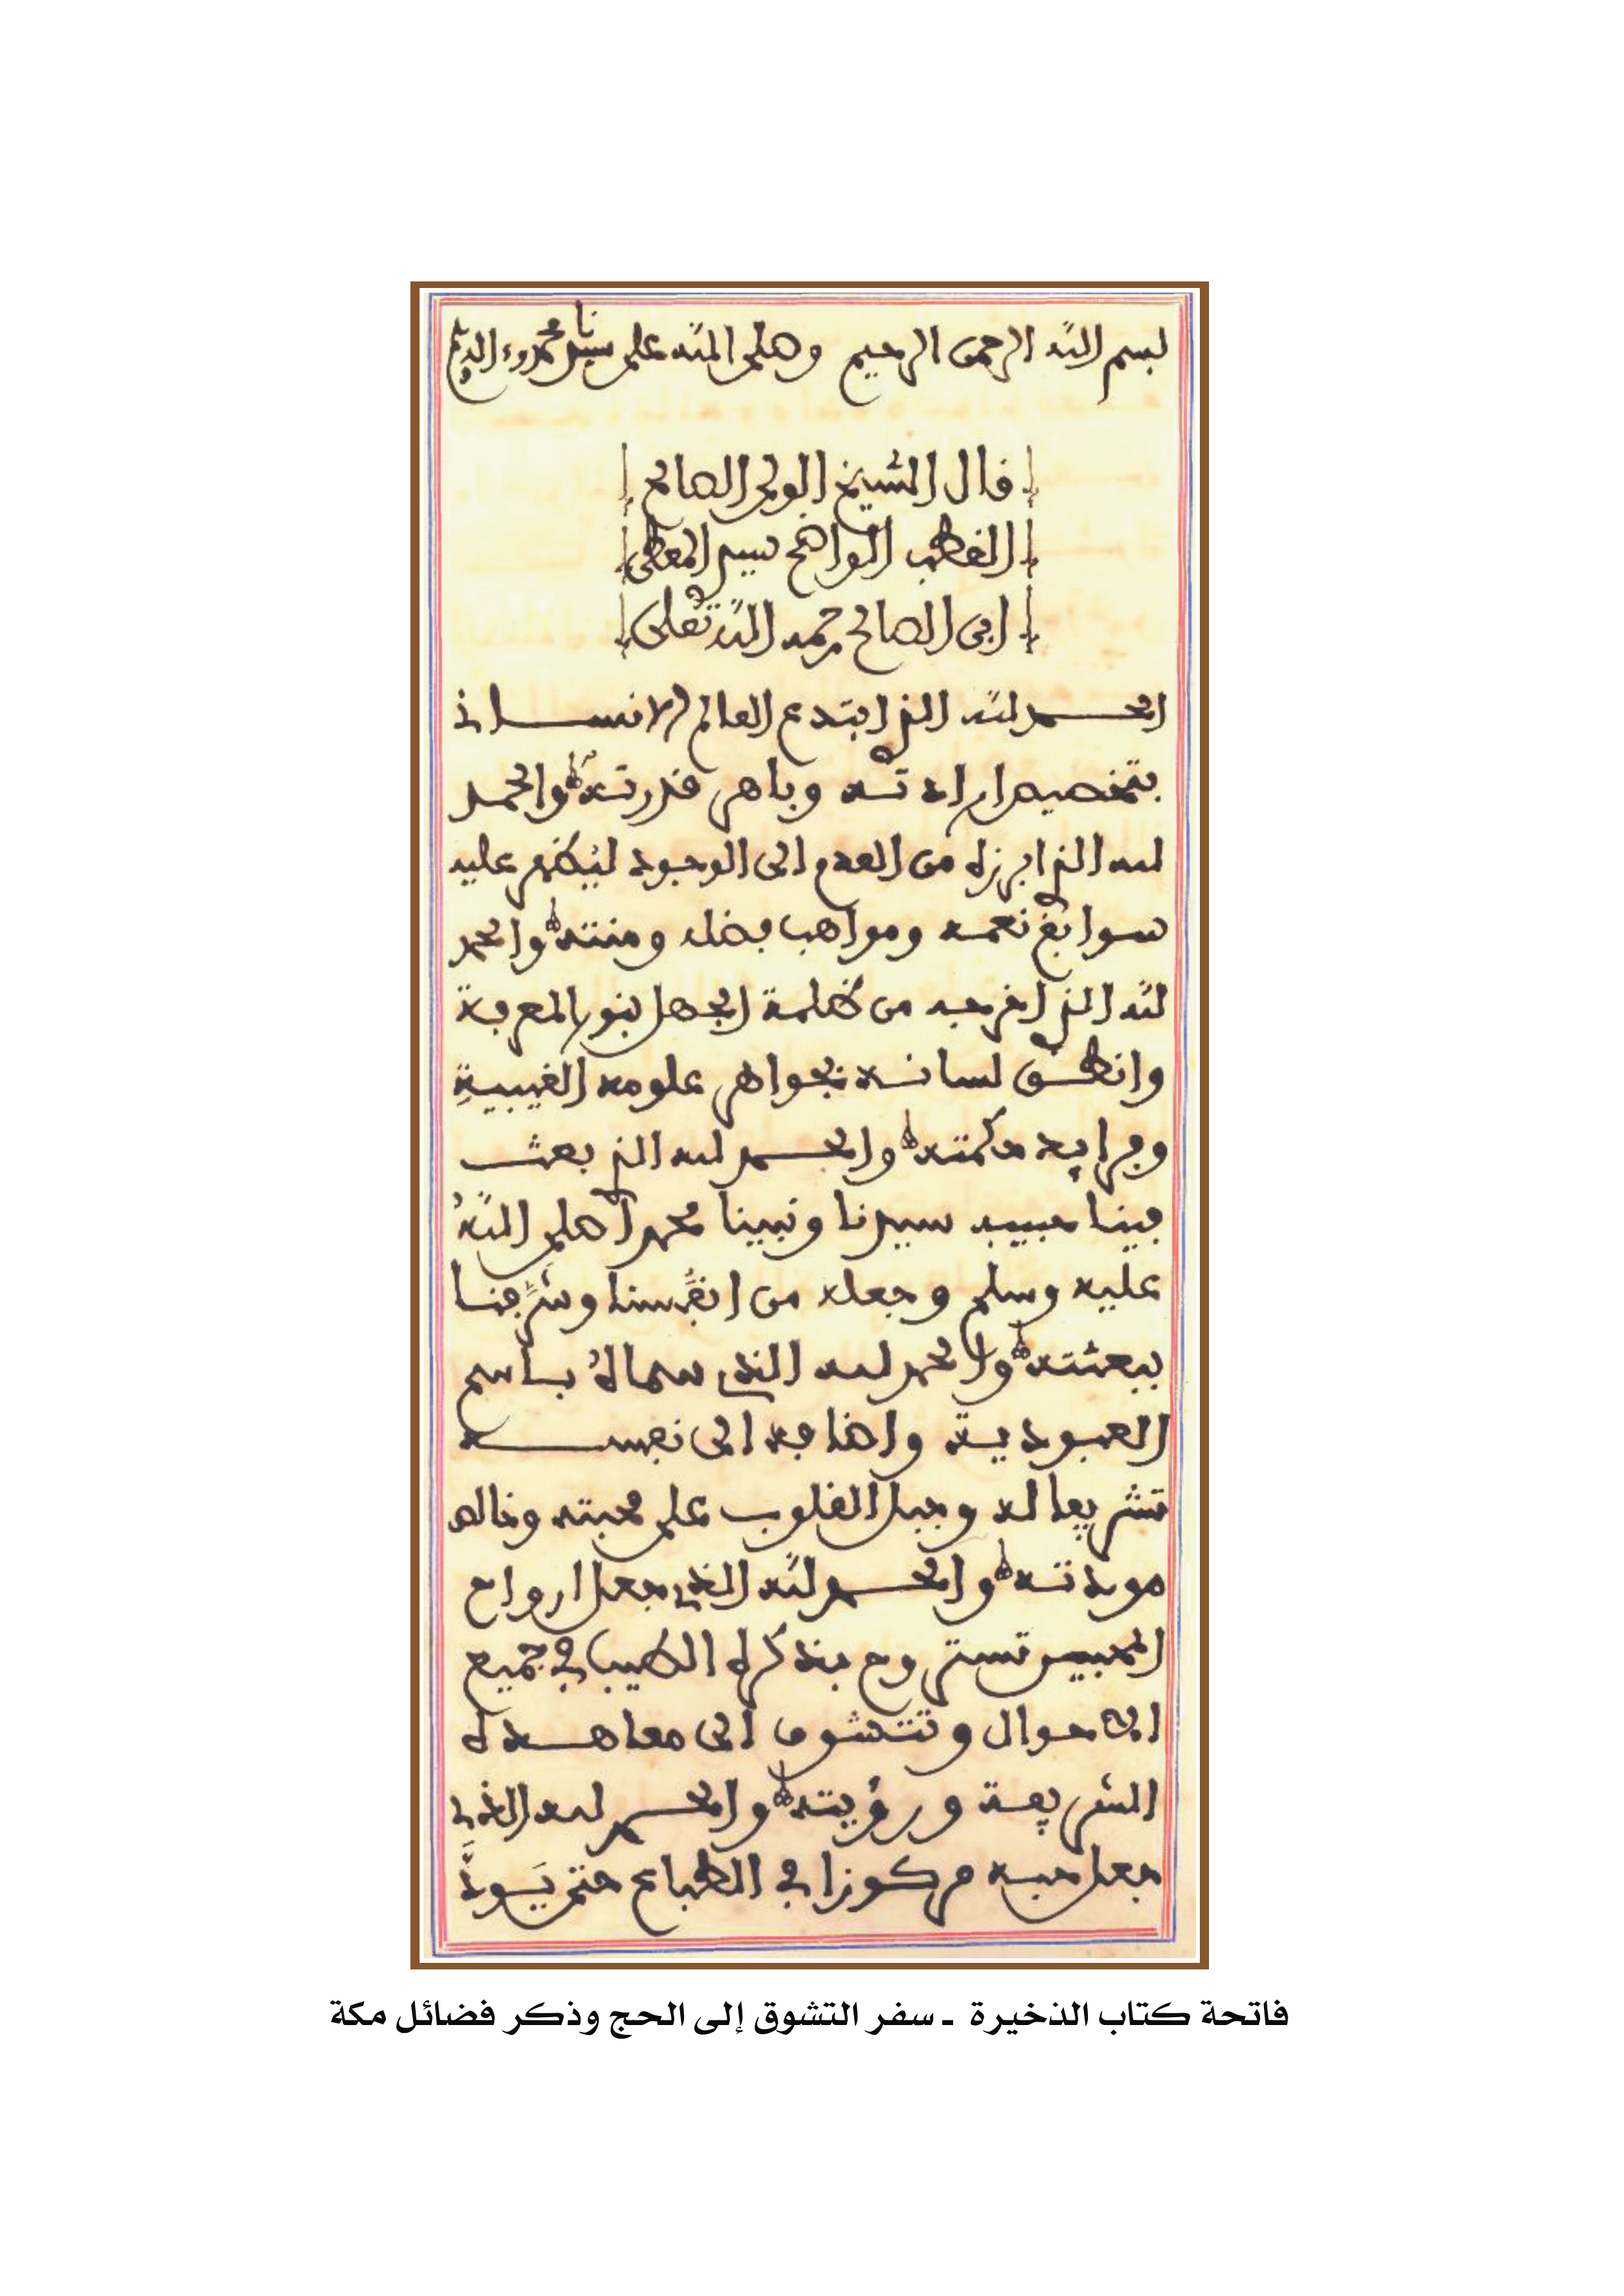 بسم الله الرحمن الرحيم وصلى الله على سيدنا محمد وءاله وسلم
قال الشيخ الولي الصالح
القطب الواضح سيدي المعطي
ابن الصالح رحمه الله تعلى
الحمد لله الذي ابتدع العالم الانساني
بتخصيص ارادته وباهر قدرته والحمد
لله الذي ابرزه من العدم الى الوجود ليظهر عليه
سوابغ نعمه ومواهب فضله ومنته والحمد
لله الذي اخرجه من ظلمة الجهل بنور المعرفة
وانطق لسانه بجواهر علومه الغيبية
وفرايد حكمته والحمد لله الذي بعث
فينا حبيبه سيدنا ونبينا محمدا صلى الله
عليه وسلم وجعله من انفسنا وشرفنا
ببعثته والحمد لله الذي سماه باسم
العبودية واضافه الى نفسه
تشريفا له وجبل القلوب على محبته وخالص
مودته والحمد لله الذي جعل ارواح
المحبين تستروح بذكره الطيب في جميع
الاحوال وتتشوق الى معاهده
الشريفة ورؤيته والحمد لله الذي
جعل حبه مركوزا في الطباع حتى يود
فاتحة كتاب الذخيرة ـ سفر التشوق إلى الحج وذكر فضائل مكة